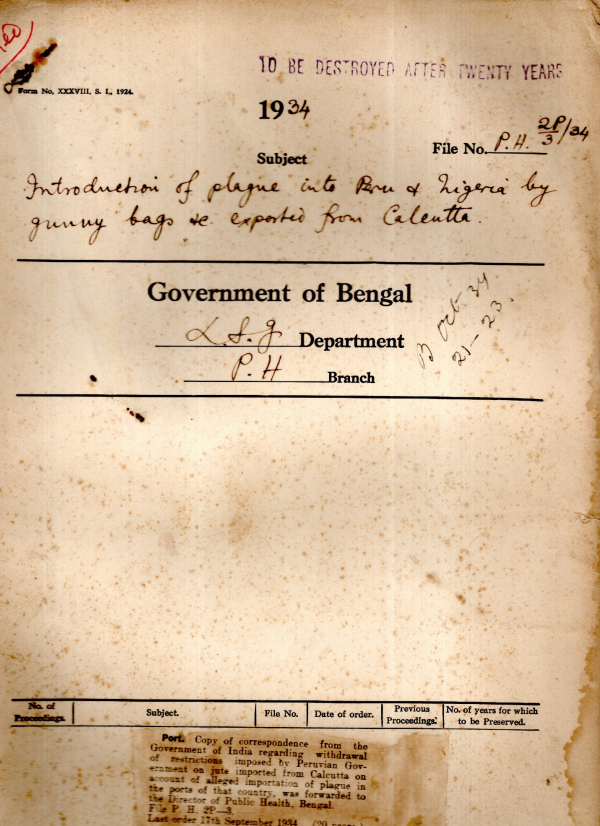 TO BE DESTROYED AFTER TWENTY YEARS
Form No, XXXVIII, S. L., 1924.
1934
File No. P.H. 2P/3/34
Subject
Introduction of plague into Peru & Nigeria by
gunny bags &c. exported from Calcutta.
Government of Bengal
L.S.G Department
P.H Branch
B Oct. 34
21-23.
No. of Proceedings. Subject. File No. Date of order. Previous Proceedings. No. of years for which to be Preserved.
Port. Copy of correspondence from the
Government of India regarding withdrawal
of restrictions imposed by Peruvian Gov-
ernment on jute imported from Calcutta on
account of alleged importation of plague in
the ports of that country, was forwarded to
the Director of Public Health, Bengal.
File P. H. 2P—3.
Last order 17th September 1934.